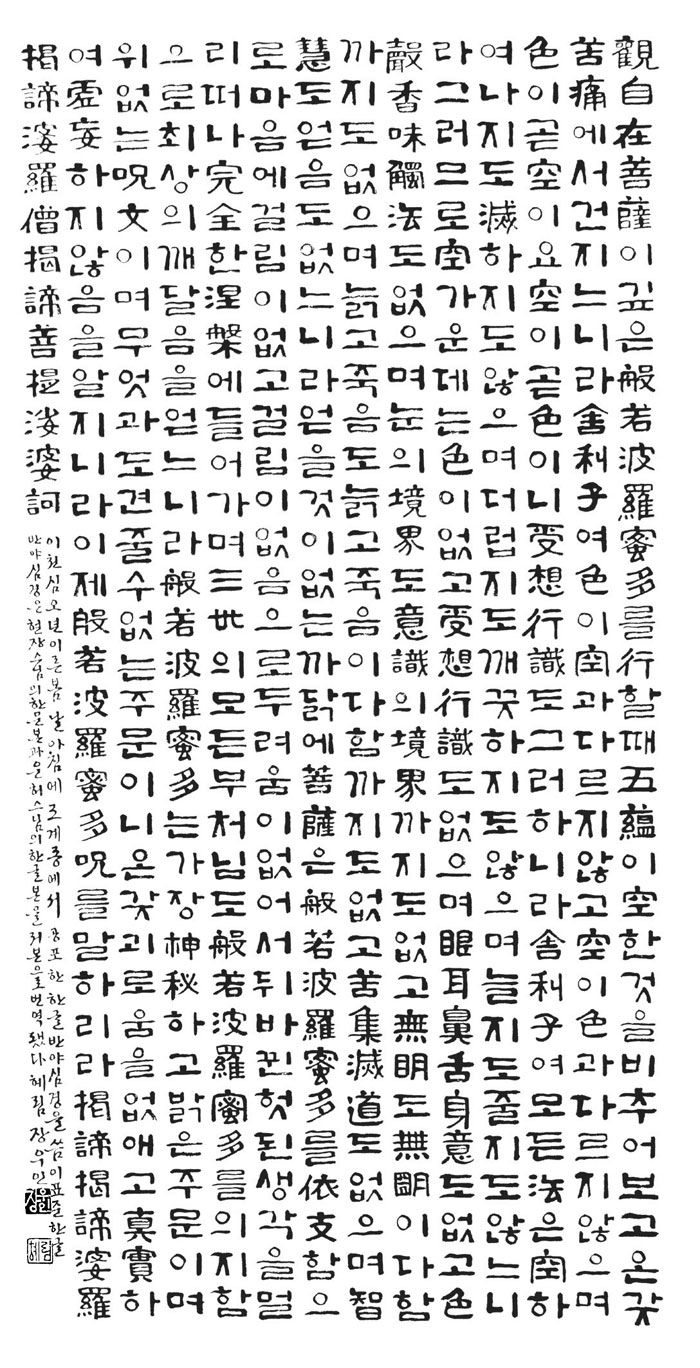 觀自在菩薩이깊은般若波羅蜜多를行할때五蘊이空한것을비추어보고온갖
苦痛에서건지느니라舍利子여色이空과다르지않고空이色과다르지않으며
色이곧空이요空이곧色이니受想行識도그러하니라舍利子여모든法은空하
여나지도滅하지도않으며더럽지도깨끗하지도않으며늘지도줄지도않느니
라그러므로空가운데는色이없고受想行識도없으며眼耳鼻舌身意도없고色
聲香味觸法도없으며눈의境界도意識의境界까지도없고無明도無明이다함
까지도없으며늙고죽음도늙고죽음이다함까지도없고苦集滅道도없으며智
慧도얻음도없느니라얻을것이없는까닭에菩薩은般若波羅蜜多를依支함으
로마음에걸림이없고걸림이없음으로두려움이없어서뒤바뀐헛된생각을멀
리떠나完全한涅槃에들어가며三世의모든부처님도般若波羅蜜多를의지함
으로최상의깨달음을얻느니라般若波羅蜜多는가장神秘하고밝은주문이며
위없는呪文이며무엇과도견줄수없는주문이니온갖괴로움을없애고真實하
여虛妄하지않음을알지니라이제般若波羅蜜多呪를말하리라揭諦揭諦婆羅
揭諦婆羅僧揭諦菩提娑婆訶
이천십오년이른봄날아침에 조계종에서 공포한 한글반야심경을 씀 이 표준 한글
반야심경은 현장스님의한문본과운허스님의한글본을저본으로번역됐다 혜림 장우인
혜림